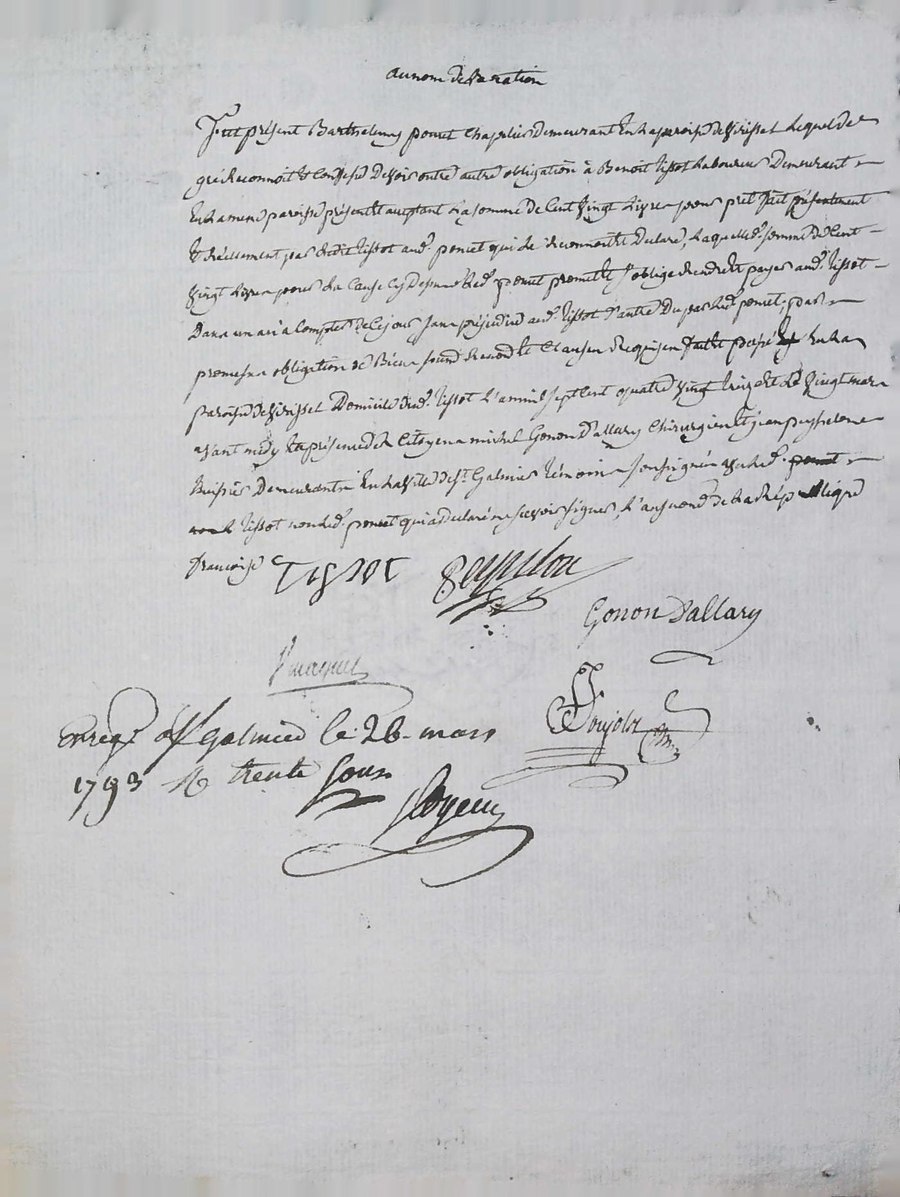 au nom de la nation
Fut présent Barthelemy poncet Chapelier demeurant en la paroisse de Virissel Lequel de
gré Reconnoit & confesse devoir outre autre obligation à Benoit tissot Laboureur demeurant
En La meme paroisse présent & acceptant La somme de Cent vingt Livres pour pret fait présentement
& réellement par Ledit tissot aud. poncet qui Le reconnoit & declare, Laquelle d. somme de Cent
vingt Livres pour La Cause cy dessus Led. poncet promet & s'oblige rendre & payer aud. tissot
Dans un an à Compter de Ce jour sans préjudice aud. tissot d'autre du par Led. poncet, par
promesse obligation de Biens soumis renond. & Clauses Requises fait & passé En La
paroisse de Virissel Domicile dud. tissot L'an mil sept Cent quatre vingt treize & Le vingt mars
avant midy En présence de Citoyens michel Gonon D'allary Chirurgien & jean peysselon
huissier Demeurants En La Ville de St. Galmier témoins soussignés avec Led. poncet
tissot non Led. poncet qui a declaré ne sçavoir signer, L'an second de La République
francoise TISSOT Peysselon
Gonon Dallary
Enregt. à St Galmier le 26 mars
1793 R trente sous